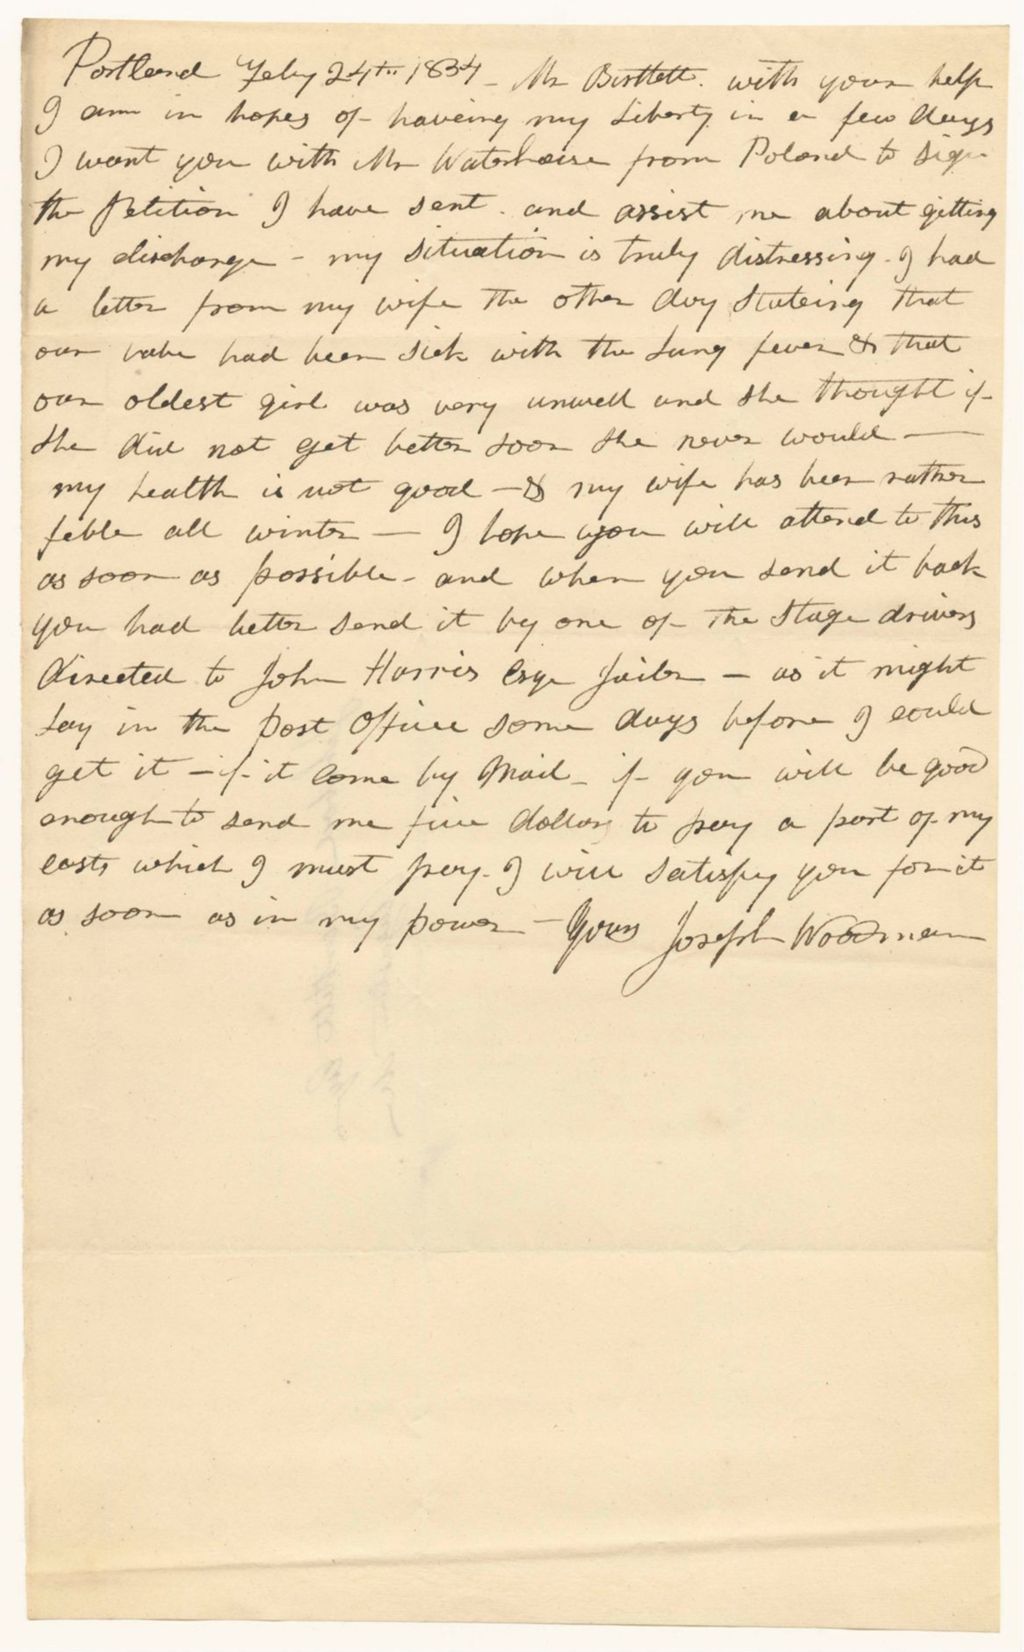 Portland Feby 24th 1834 - Mr Bartlett. with your help
I am in hopes of haveing my Liberty in a few days
I want you with Mr Waterhouse from Poland to sign
the Petition I have sent. and assist me about getting
my discharge - my situation is truly distressing. I had
a letter from my wife the other day stateing that
our babe had been sick with the Lung fever & that
our oldest girl was very unwell and she thought if
she did not get better soon she never would —
my health is not good - & my wife has been rather
feble all winter — I hope you will attend to this
as soon as possible - and when you send it back
you had better send it by one of the Stage drivers
directed to John Harris Esqr Jailer - as it might
Lay in the post office some days before I could
get it - if it come by Mail - if you will be good
enough to send me five dollars to pay a part of my
costs which I must pay. I will satisfy you for it
as soon as in my power - Yours Joseph Woodman